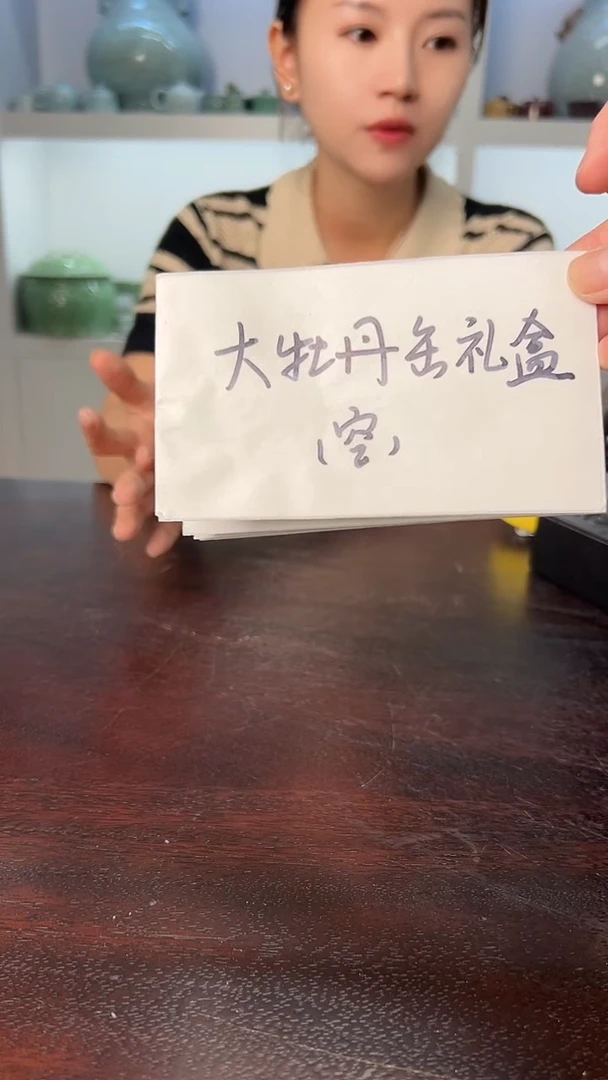 大牡丹缶礼盒
(空)